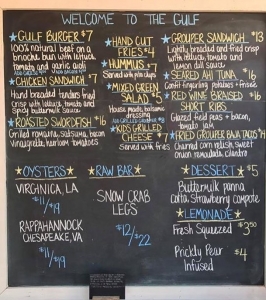 WELCOME TO THE GULF
GULF BURGER $7
100% natural beef on a
brioche bun with lettuce,
tomato and garlic aioli
CHICKEN SANDWICH $7
Hand breaded tenders fried
crisp with lettuce, tomato and
spicy buttermilk sauce
ROASTED SWORDFISH $16
Grilled romaine, satsuma, bacon
vinaigrette, heirloom tomatoes
HAND CUT
FRIES $4
HUMMUS $7
Served with pita chips
MIXED GREEN
SALAD
House made balsamic
dressing
KIDS GRILLED
CHEESE
Served with fries
GROUPER SANDWICH $13
Lightly breaded and fried crisp
with lettuce, tomato and
lemon dill sauce
SEARED AHI TUNA $16
Confit fingerling potatoes
RED WINE BRAISED $16
SHORT RIBS
Glazed field peas + bacon,
tomato jam
FRIED GROUPER BAJA TACOS
Charred corn relish, sweet
onion remoulade, cilantro
OYSTERS
VIRGINICA, LA
$11/$19
RAPPAHANNOCK
CHESAPEAKE, VA
$11/$19
RAW BAR
SNOW CRAB
LEGS
$12/$22
DESSERT $5
Buttermilk panna
cotta, strawberry compote
LEMONADE
Fresh Squeezed $3.50
Prickly Pear $4
Infused